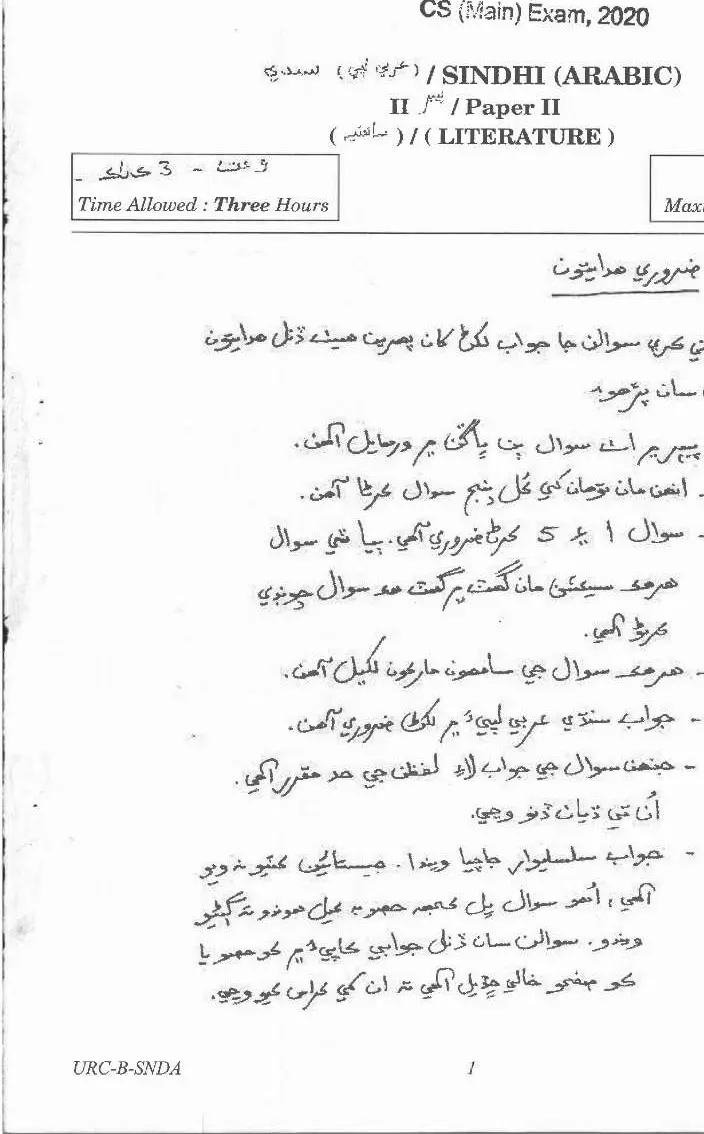 CS (Main) Exam, 2020
سنڌي (عربي لپي) / SINDHI (ARABIC)
II پيپر / Paper II
(ساهتيه) / ( LITERATURE )
وقت - 3 ڪلاڪ
Time Allowed : Three Hours
ضروري هدايتون
ڪري سوالن جا جواب لکڻ کان پهرين هيٺ ڏنل هدايتون
سان پڙهو.
پيپر ۾ اٺ سوال ٻن ڀاڱن ۾ ورهايل آهن.
انهن مان توهان کي ڪُل پنج سوال ڪرڻا آهن.
- سوال 1 ۽ 5 ڪرڻا ضروري آهي. ٻيا ٽي سوال
هرهڪ سيڪشن مان گهٽ ۾ گهٽ هڪ سوال چونڊي
ڪرڻو آهي.
- هرهڪ سوال جي سامهون مارڪون لکيل آهن.
- جواب سنڌي عربي لپيءَ ۾ لکڻ ضروري آهن.
- جنهن سوال جي جواب لاءِ لفظن جي حد مقرر آهي.
اُن تي ڌيان ڏنو وڃي.
- جواب سلسليوار جاچيا ويندا. جيستائين ڪٽيو نه ويو
آهي، اُهو سوال ڀل ڪجهه حصو به ڪيل هوندو ته ڳڻيو
ويندو. سوالن سان ڏنل جوابي ڪاپيءَ ۾ ڪو حصو يا
ڪو صفحو خالي ڇڏيل آهي ته ان کي ڪراس ڪيو وڃي.
URC-B-SNDA
1